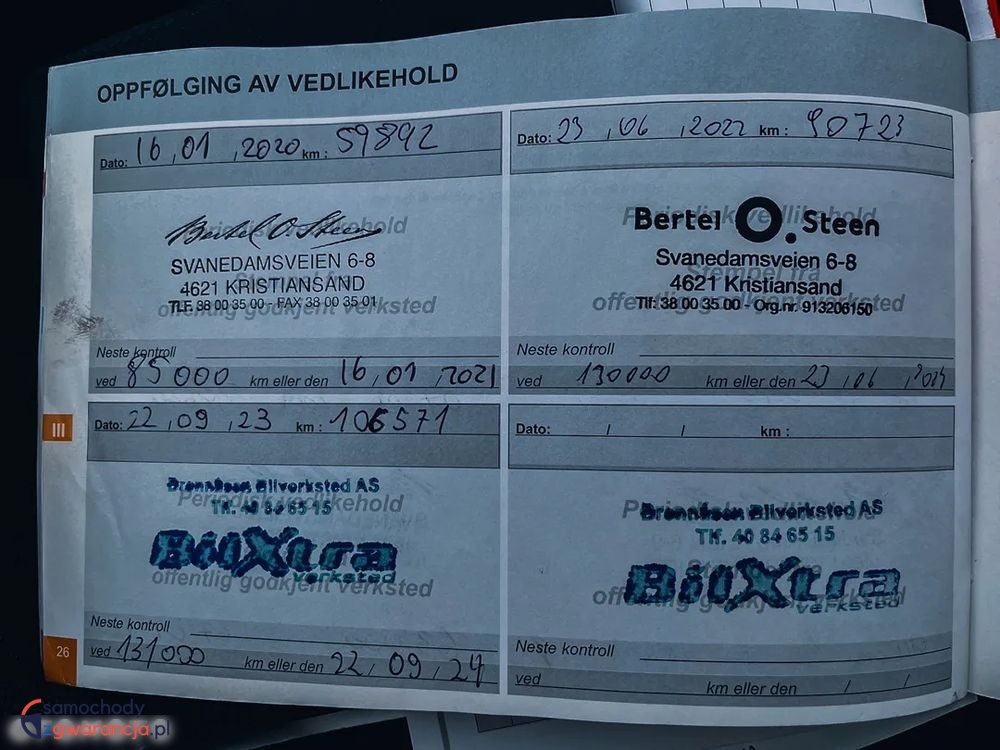 OPPFØLGING AV VEDLIKEHOLD
Dato: 16,01,2020 km: 59892
Periodisk vedlikehold
Bertel O. Steen
SVANEDAMSVEIEN 6-8
4621 KRISTIANSAND
Stempel fra
TLF. 38 00 35 00 - FAX 38 00 35 01
offentlig godkjent verksted
Neste kontroll
ved 85000 km eller den 16,01,2021
Dato: 23,06,2022 km: 90723
Periodisk vedlikehold
Bertel O. Steen
Svanedamsveien 6-8
Stempel fra
4621 Kristiansand
offentlig godkjent verksted
Tlf: 38 00 35 00 - Org.nr. 913206150
Neste kontroll
ved 130000 km eller den 23,06,2024
III
Dato: 22,09,23 km: 106571
Brennåsen Bilverksted AS
Periodisk vedlikehold
Tlf. 40 84 65 15
BilXtra
verksted
offentlig godkjent verksted
Neste kontroll
ved 131000 km eller den 22,09,24
Dato: / / km:
Brennåsen Bilverksted AS
Periodisk vedlikehold
Tlf. 40 84 65 15
Stempel fra
BilXtra
verksted
offentlig godkjent verksted
Neste kontroll
ved km eller den / /
26
samochody
zgwarancja.pl